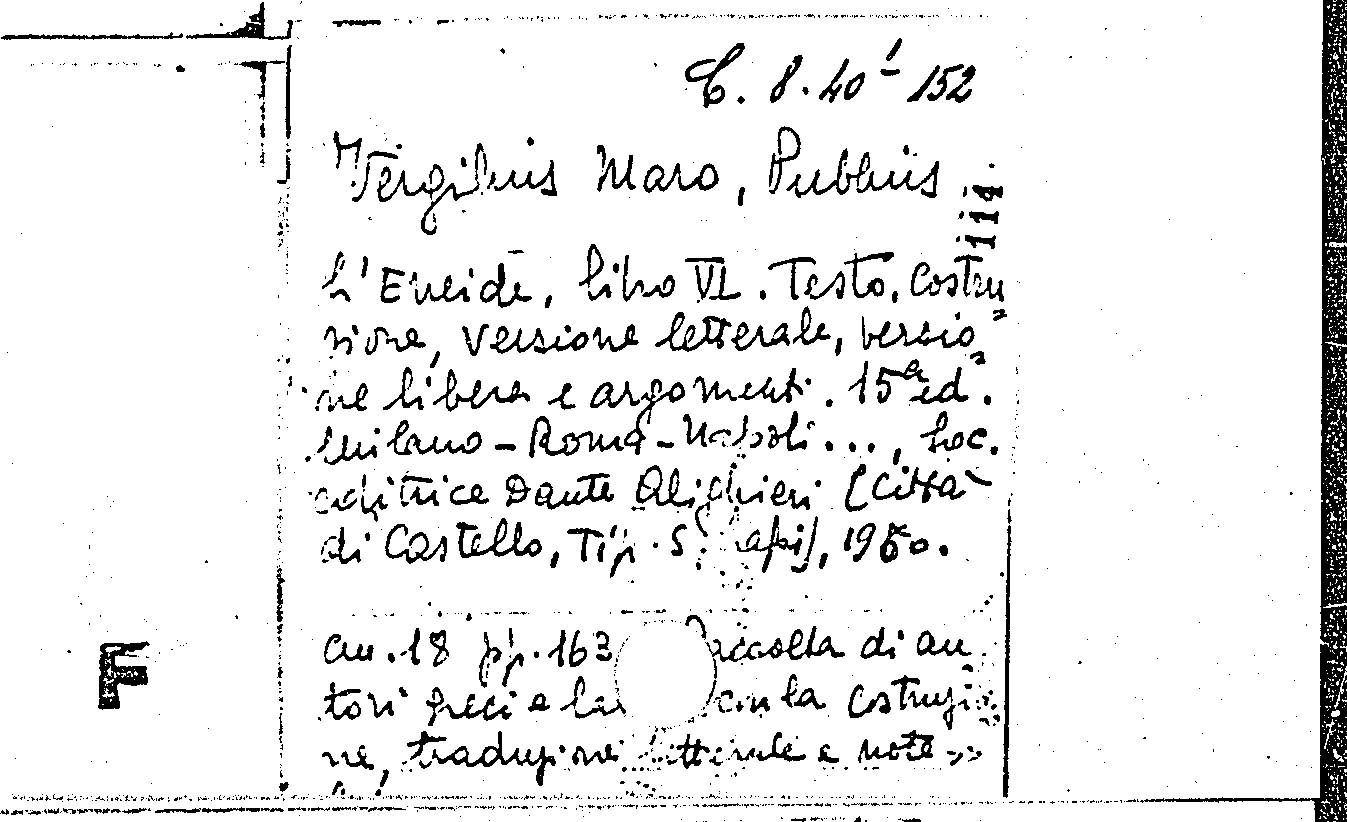 C. 8. 40¹ - 152
Vergilius Maro, Publius
L'Eneide, libro VI. Testo, costru
zione, versione letterale, versio
ne libera e argomenti. 15ª ed.
Milano - Roma - Napoli ..., Soc.
editrice Dante Alighieri (Città
di Castello, Tip. S. Lapi), 1960.
cm. 18 pp. 163 Raccolta di au
tori greci e la con la costruzio
ne, traduzione letterale e note >>
F